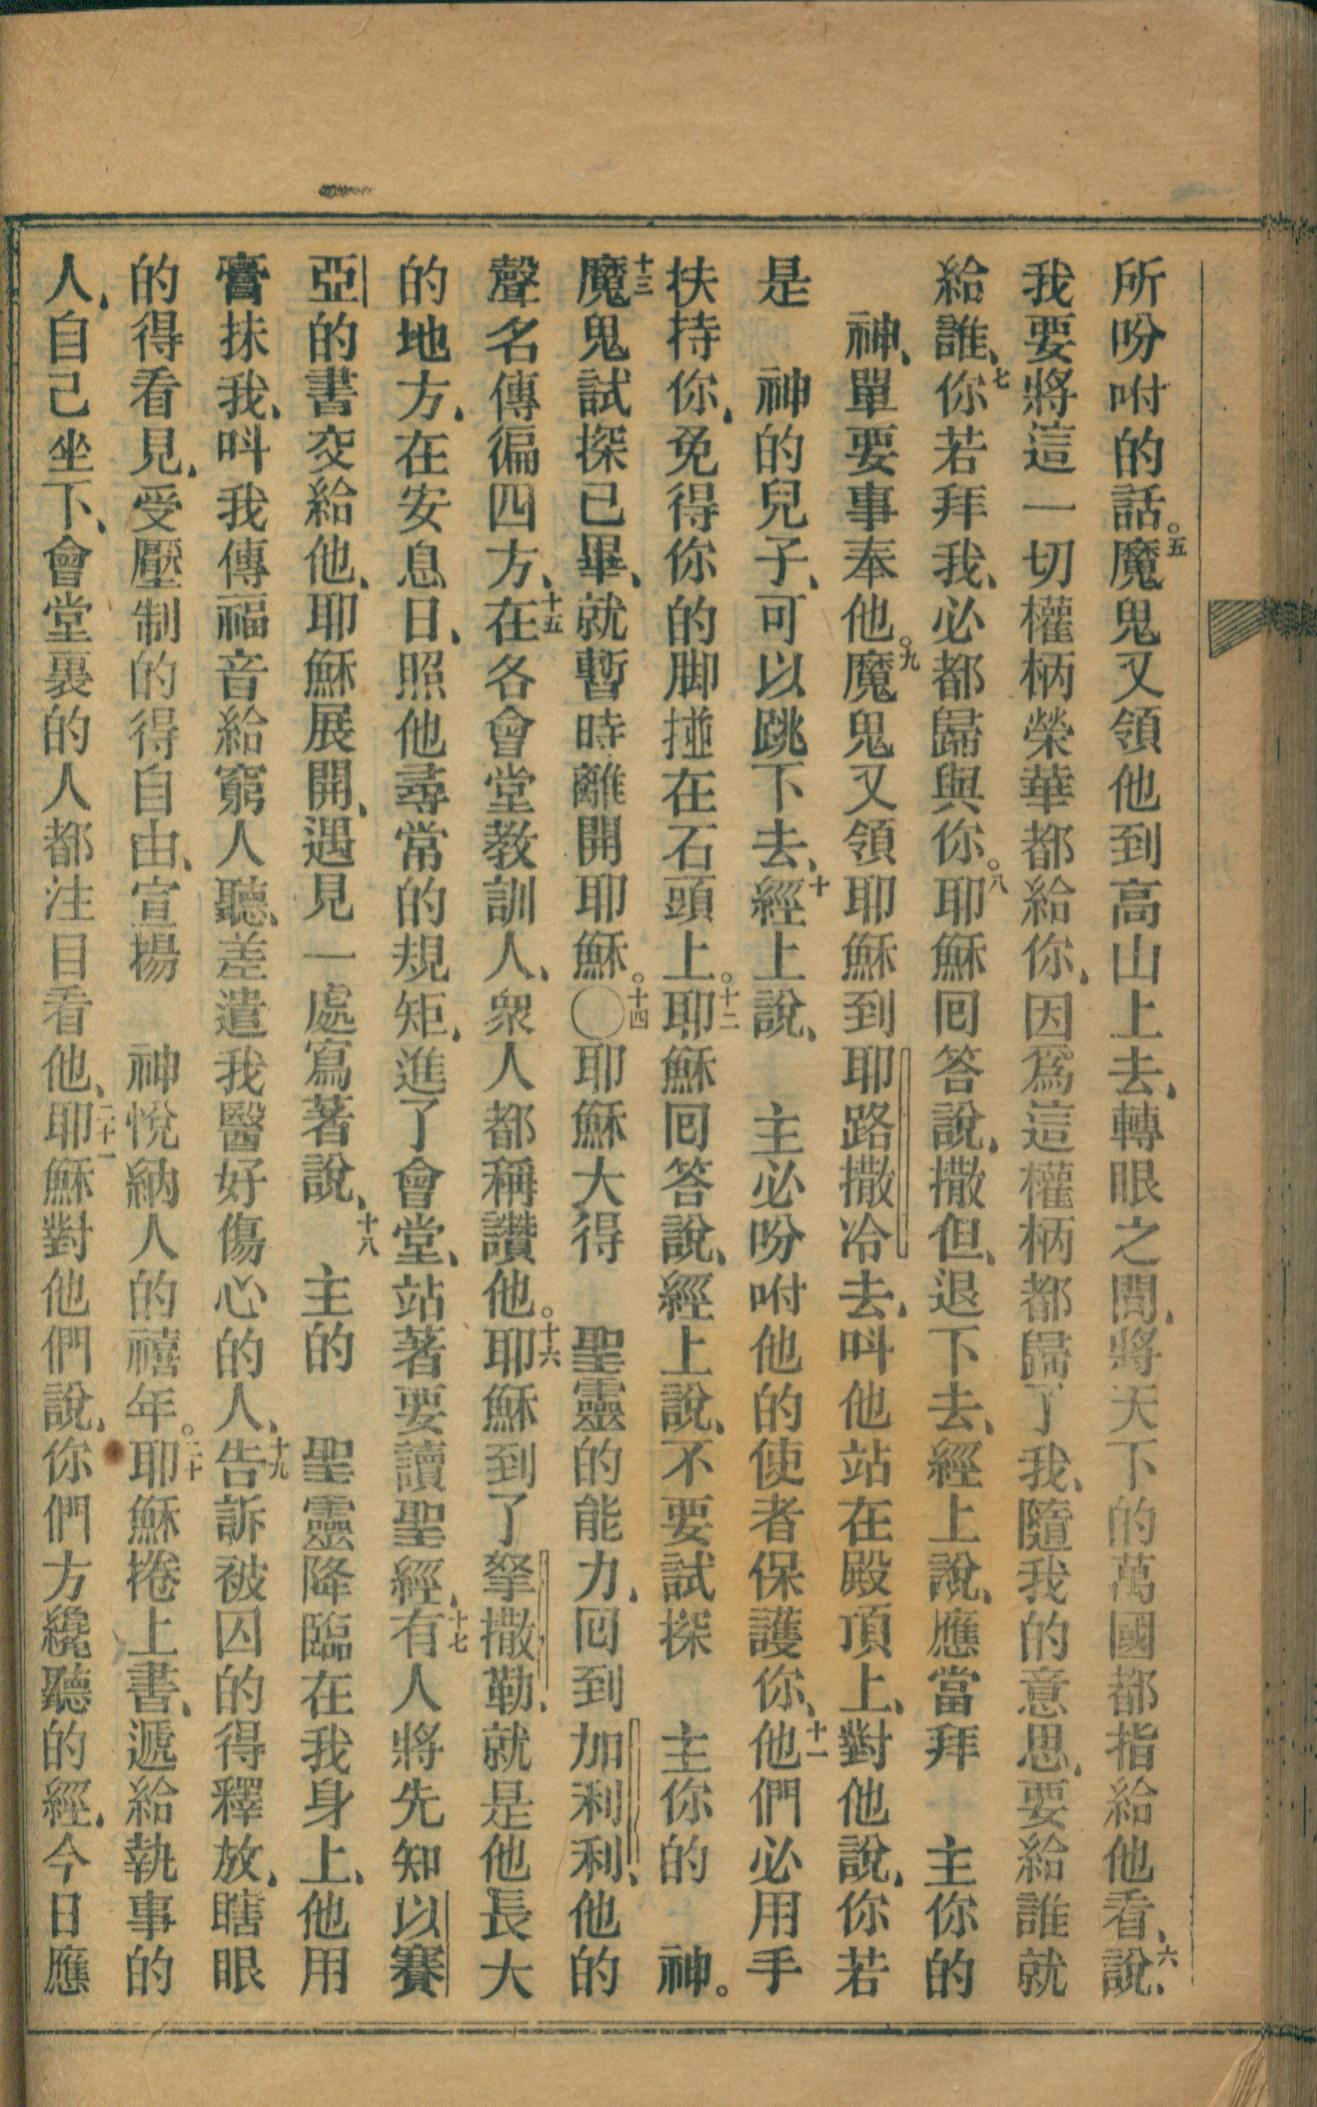 所吩咐的話。五魔鬼又領他到高山上去、轉眼之間、將天下的萬國都指給他看、六說、
我要將這一切權柄榮華都給你、因爲這權柄都歸了我、隨我的意思、要給誰就
給誰、七你若拜我、必都歸與你。八耶穌回答說、撒但、退下去、經上說、應當拜　主你的
　神、單要事奉他。九魔鬼又領耶穌到耶路撒冷去、叫他站在殿頂上、對他說、你若
是　神的兒子、可以跳下去、十經上說、　主必吩咐他的使者保護你、十一他們必用手
扶持你、免得你的脚撞在石頭上。十二耶穌回答說、經上說、不要試探　主你的　神。
十三魔鬼試探已畢、就暫時離開耶穌。〇十四耶穌大得　聖靈的能力、回到加利利、他的
聲名傳徧四方、十五在各會堂教訓人、衆人都稱讚他。十六耶穌到了拏撒勒、就是他長大
的地方、在安息日、照他尋常的規矩、進了會堂、站著要讀聖經、十七有人將先知以賽
亞的書交給他、耶穌展開、遇見一處寫著說、十八　主的　聖靈降臨在我身上、他用
膏抹我、叫我傳福音給窮人聽、差遣我醫好傷心的人、十九告訴被囚的得釋放、瞎眼
的得看見、受壓制的得自由、宣揚　神悅納人的禧年。二十耶穌捲上書、遞給執事的
人、自己坐下、會堂裏的人都注目看他、二十一耶穌對他們說、你們方纔聽的經、今日應